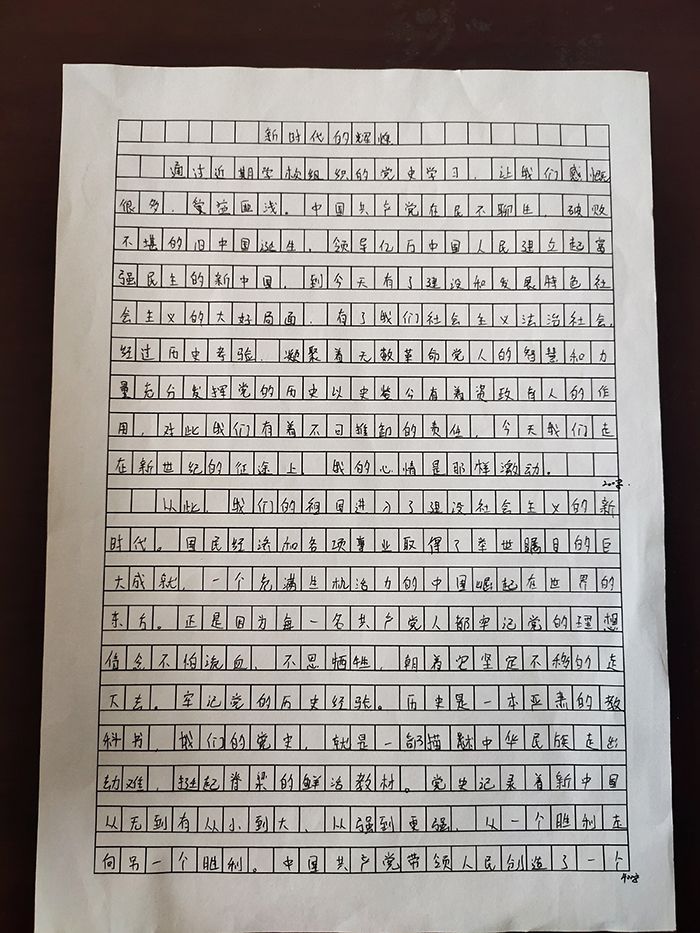 新时代的辉煌
通过近期学校组织的党史学习，让我们感慨
很多，受益匪浅。中国共产党在民不聊生，破败
不堪的旧中国诞生，领导亿万中国人民建立起富
强民主的新中国，到今天有了建设和发展特色社
会主义的大好局面，有了我们社会主义法治社会，
经过历史考验，凝聚着无数革命党人的智慧和力
量充分发挥党的历史以史鉴今有着资政育人的作
用，对此我们有着不可推卸的责任，今天我们走
在新世纪的征途上 我的心情是那样激动。
200字.
以此，我们的祖国进入了建设社会主义的新
时代。国民经济和各项事业取得了举世瞩目的巨
大成就，一个充满生机活力的中国崛起在世界的
东方。正是因为每一名共产党人都牢记党的理想
信念不怕流血、不思牺牲，朝着它坚定不移的走
下去。牢记党的历史经验。历史是一本严肃的教
科书，我们的党史，就是一部描述中华民族走出
劫难，挺起脊梁的鲜活教材。党史记录着新中国
从无到有从小到大、从强到更强，从一个胜利走
向另一个胜利。中国共产党带领人民创造了一个
400字